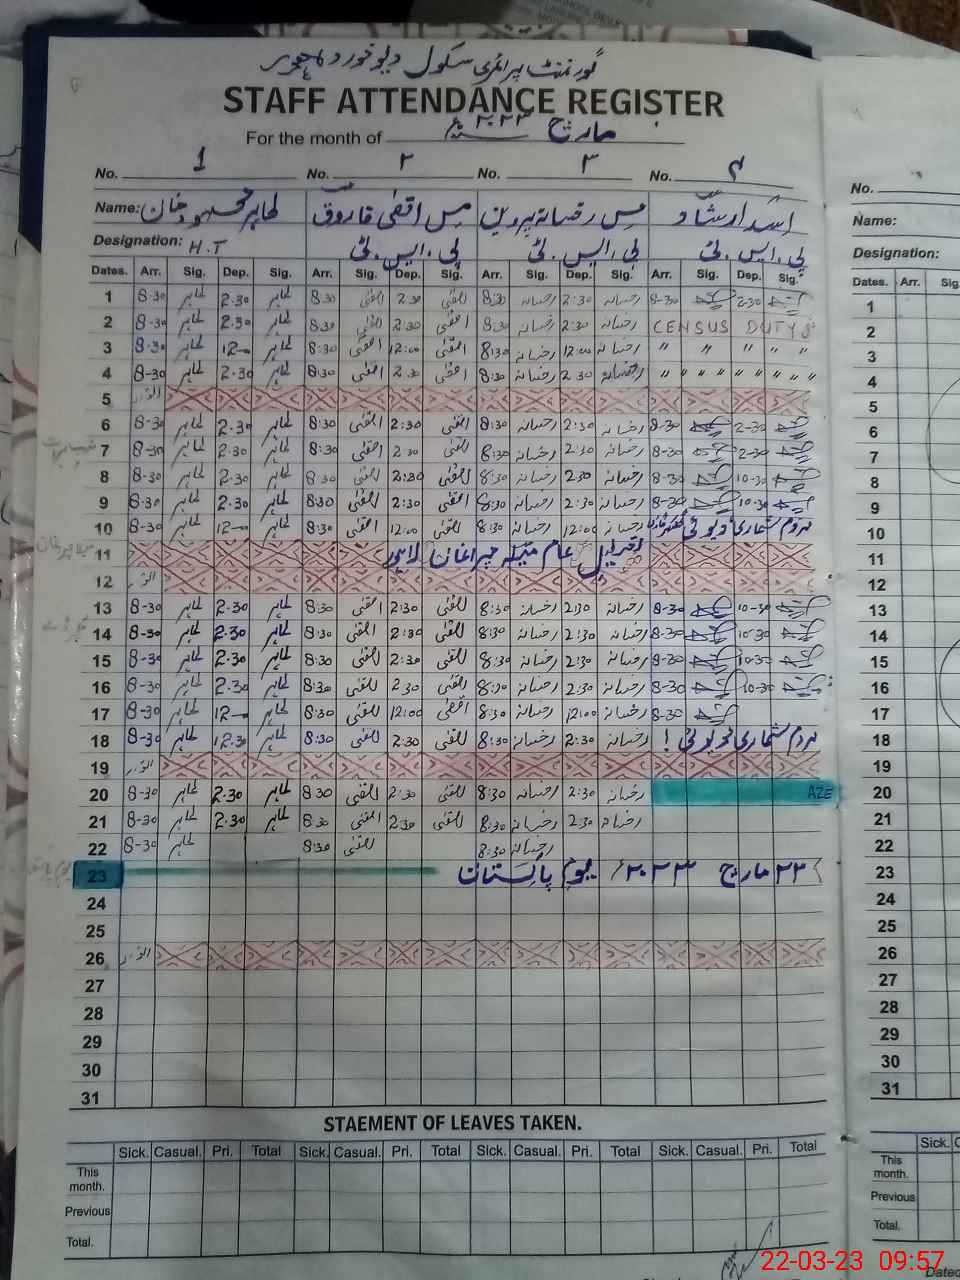 گورنمنٹ پرائمری سکول
STAFF ATTENDANCE REGISTER
For the month of مارچ ۲۰۲۳ء
No. 1 No. ۲ No. ۳ No. ۴
Name: طاہر محمود خان مس اقصٰی فاروق مس رخسانہ پروین اسد ارشاد
Designation: H.T پی.ایس.ٹی پی.ایس.ٹی پی.ایس.ٹی
Dates. Arr. Sig. Dep. Sig. Arr. Sig. Dep. Sig. Arr. Sig. Dep. Sig. Arr. Sig. Dep. Sig.
1 8-30 طاہر 2.30 طاہر 8:30 اقصٰی 2:30 اقصٰی 8:30 رخسانہ 2:30 رخسانہ 8-30 2-30
2 8-30 طاہر 2.30 طاہر 8:30 اقصٰی 2:30 اقصٰی 8:30 رخسانہ 2:30 رخسانہ CENSUS DUTY
3 8-30 طاہر 12-- طاہر 8:30 اقصٰی 12:00 اقصٰی 8:30 رخسانہ 12:00 رخسانہ " " " " "
4 8-30 طاہر 2.30 طاہر 8:30 اقصٰی 2:30 اقصٰی 8:30 رخسانہ 2:30 رخسانہ " " " " " " "
5 اتوار
6 8-30 طاہر 2.30 طاہر 8:30 اقصٰی 2:30 اقصٰی 8:30 رخسانہ 2:30 رخسانہ 8-30 2-30
7 8-30 طاہر 2.30 طاہر 8:30 اقصٰی 2:30 اقصٰی 8:30 رخسانہ 2:30 رخسانہ 8-30 2-30
8 8-30 طاہر 2.30 طاہر 8:30 اقصٰی 2:30 اقصٰی 8:30 رخسانہ 2:30 رخسانہ 8-30 10-30
9 8-30 طاہر 2.30 طاہر 8:30 اقصٰی 2:30 اقصٰی 8:30 رخسانہ 2:30 رخسانہ 8-30 10-30
10 8-30 طاہر 12-- طاہر 8:30 اقصٰی 12:00 اقصٰی 8:30 رخسانہ 12:00 رخسانہ مردم شماری ڈیوٹی
11 تعطیل عام میلہ چراغاں لاہور
12 اتوار
13 8-30 طاہر 2.30 طاہر 8:30 اقصٰی 2:30 اقصٰی 8:30 رخسانہ 2:30 رخسانہ 8-30 10-30
14 8-30 طاہر 2.30 طاہر 8:30 اقصٰی 2:30 اقصٰی 8:30 رخسانہ 2:30 رخسانہ 8-30 10-30
15 8-30 طاہر 2.30 طاہر 8:30 اقصٰی 2:30 اقصٰی 8:30 رخسانہ 2:30 رخسانہ 8-30 10-30
16 8-30 طاہر 2.30 طاہر 8:30 اقصٰی 2:30 اقصٰی 8:30 رخسانہ 2:30 رخسانہ 8-30 10-30
17 8-30 طاہر 12-- طاہر 8:30 اقصٰی 12:00 اقصٰی 8:30 رخسانہ 12:00 رخسانہ 8-30
18 8-30 طاہر 12.30 طاہر 8:30 اقصٰی 2:30 اقصٰی 8:30 رخسانہ 2:30 رخسانہ مردم شماری ڈیوٹی !
19 اتوار
20 8-30 طاہر 2.30 طاہر 8:30 اقصٰی 2:30 اقصٰی 8:30 رخسانہ 2:30 رخسانہ
21 8-30 طاہر 2.30 طاہر 8:30 اقصٰی 2:30 اقصٰی 8:30 رخسانہ 2:30 رخسانہ
22 8-30 طاہر 8:30 اقصٰی 8:30 رخسانہ
23 ۲۳ مارچ ۲۰۲۳ء یوم پاکستان
24
25
26 اتوار
27
28
29
30
31
STAEMENT OF LEAVES TAKEN.
Sick. Casual. Pri. Total Sick. Casual. Pri. Total Sick. Casual. Pri. Total Sick. Casual. Pri. Total
This month.
Previous
Total.
No.
Name:
Designation:
Dates. Arr. Sig.
1
2
3
4
5
6
7
8
9
10
11
12
13
14
15
16
17
18
19
20
21
22
23
24
25
26
27
28
29
30
31
Sick.
This month.
Previous
Total.
Dated
22-03-23 09:57